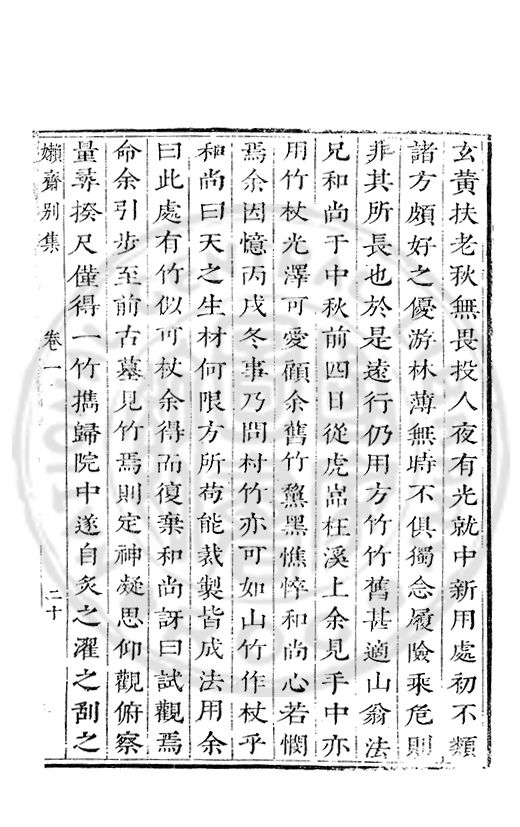 玄黃扶老秋無畏投人夜有光就中新用處初不類
諸方頗好之優游林薄無時不俱獨念履險乘危則
非其所長也於是遠行仍用方竹竹舊甚適山翁法
兄和尚于中秋前四日從虎嵓枉溪上余見手中亦
用竹杖光澤可愛顧余舊竹黧黑憔悴和尚心若憫
焉余因憶丙戌冬事乃問村竹亦可如山竹作杖乎
和尚曰天之生材何限方所苟能裁製皆成法用余
曰此處有竹似可杖余得而復棄和尚訝曰試觀焉
命余引步至前古墓見竹焉則定神凝思仰觀俯察
量尋揆尺僅得一竹擕歸院中遂自炙之濯之刮之
嬾齋别集 卷一 二十